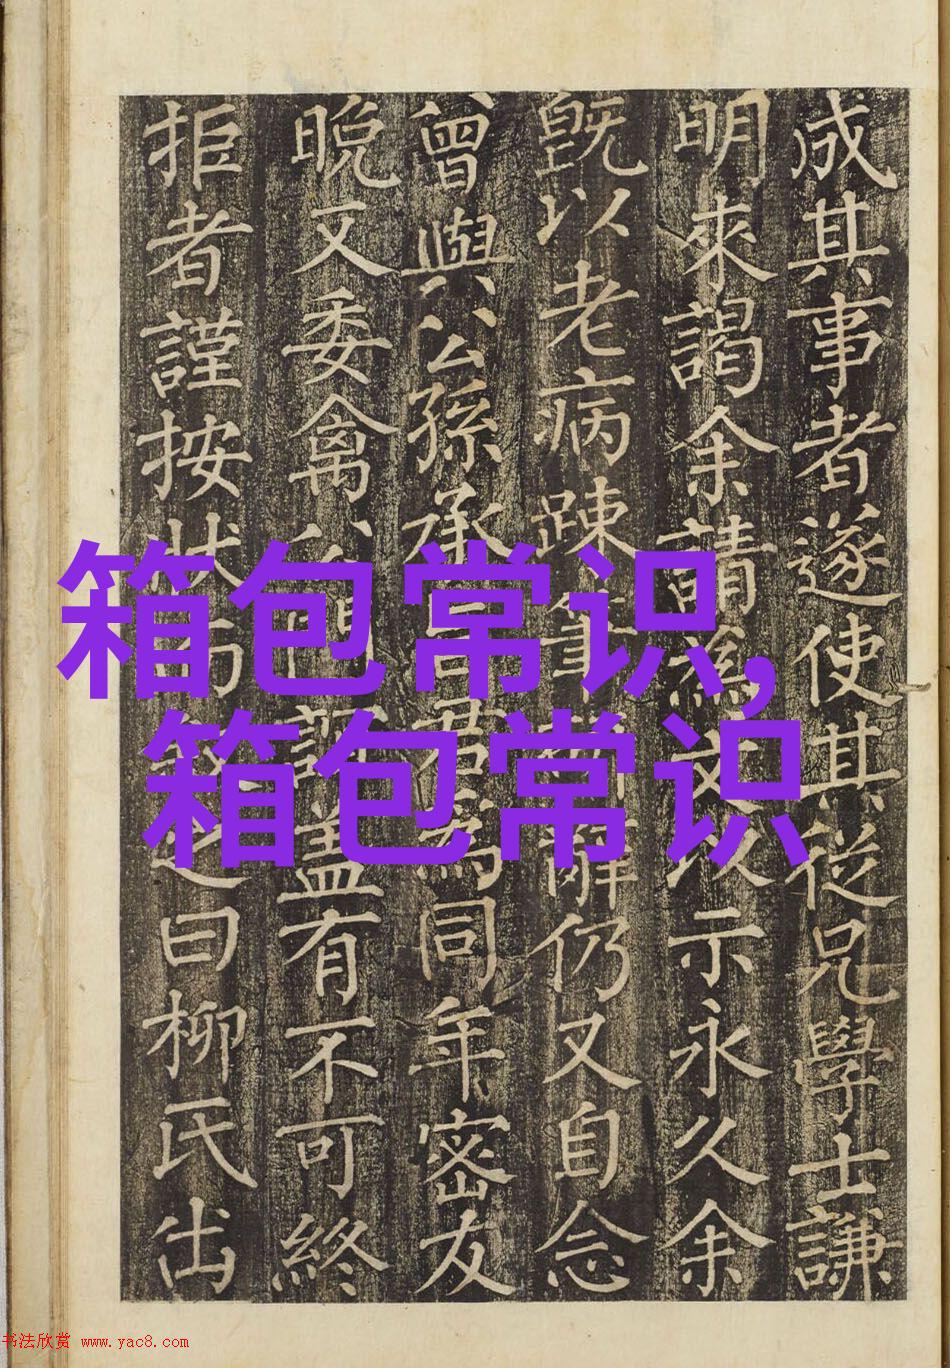 成其事者遂使其從兄學士謙
明來謁余請為文以示永久余
既以老病踈筆辭仍又自念
曾與公孫承君為同年密友
晚又委禽門訶盖有不可終
拒者謹按狀而敘之曰柳氏出
箱包常识,
箱包常识
书法欣赏 www.yac8.com